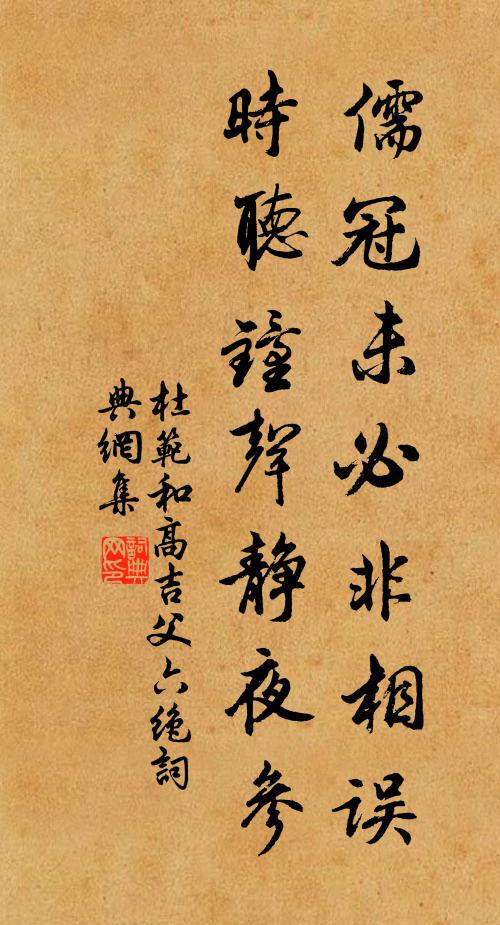 儒冠未必非相误
時聽鐘聲静夜參
杜範和高吉父六絶詞
典網集
詞典
网印